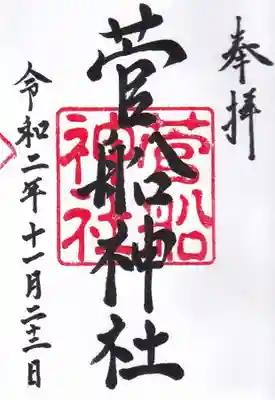 奉拝
菅船神社
菅船神社
令和二年十一月二十三日